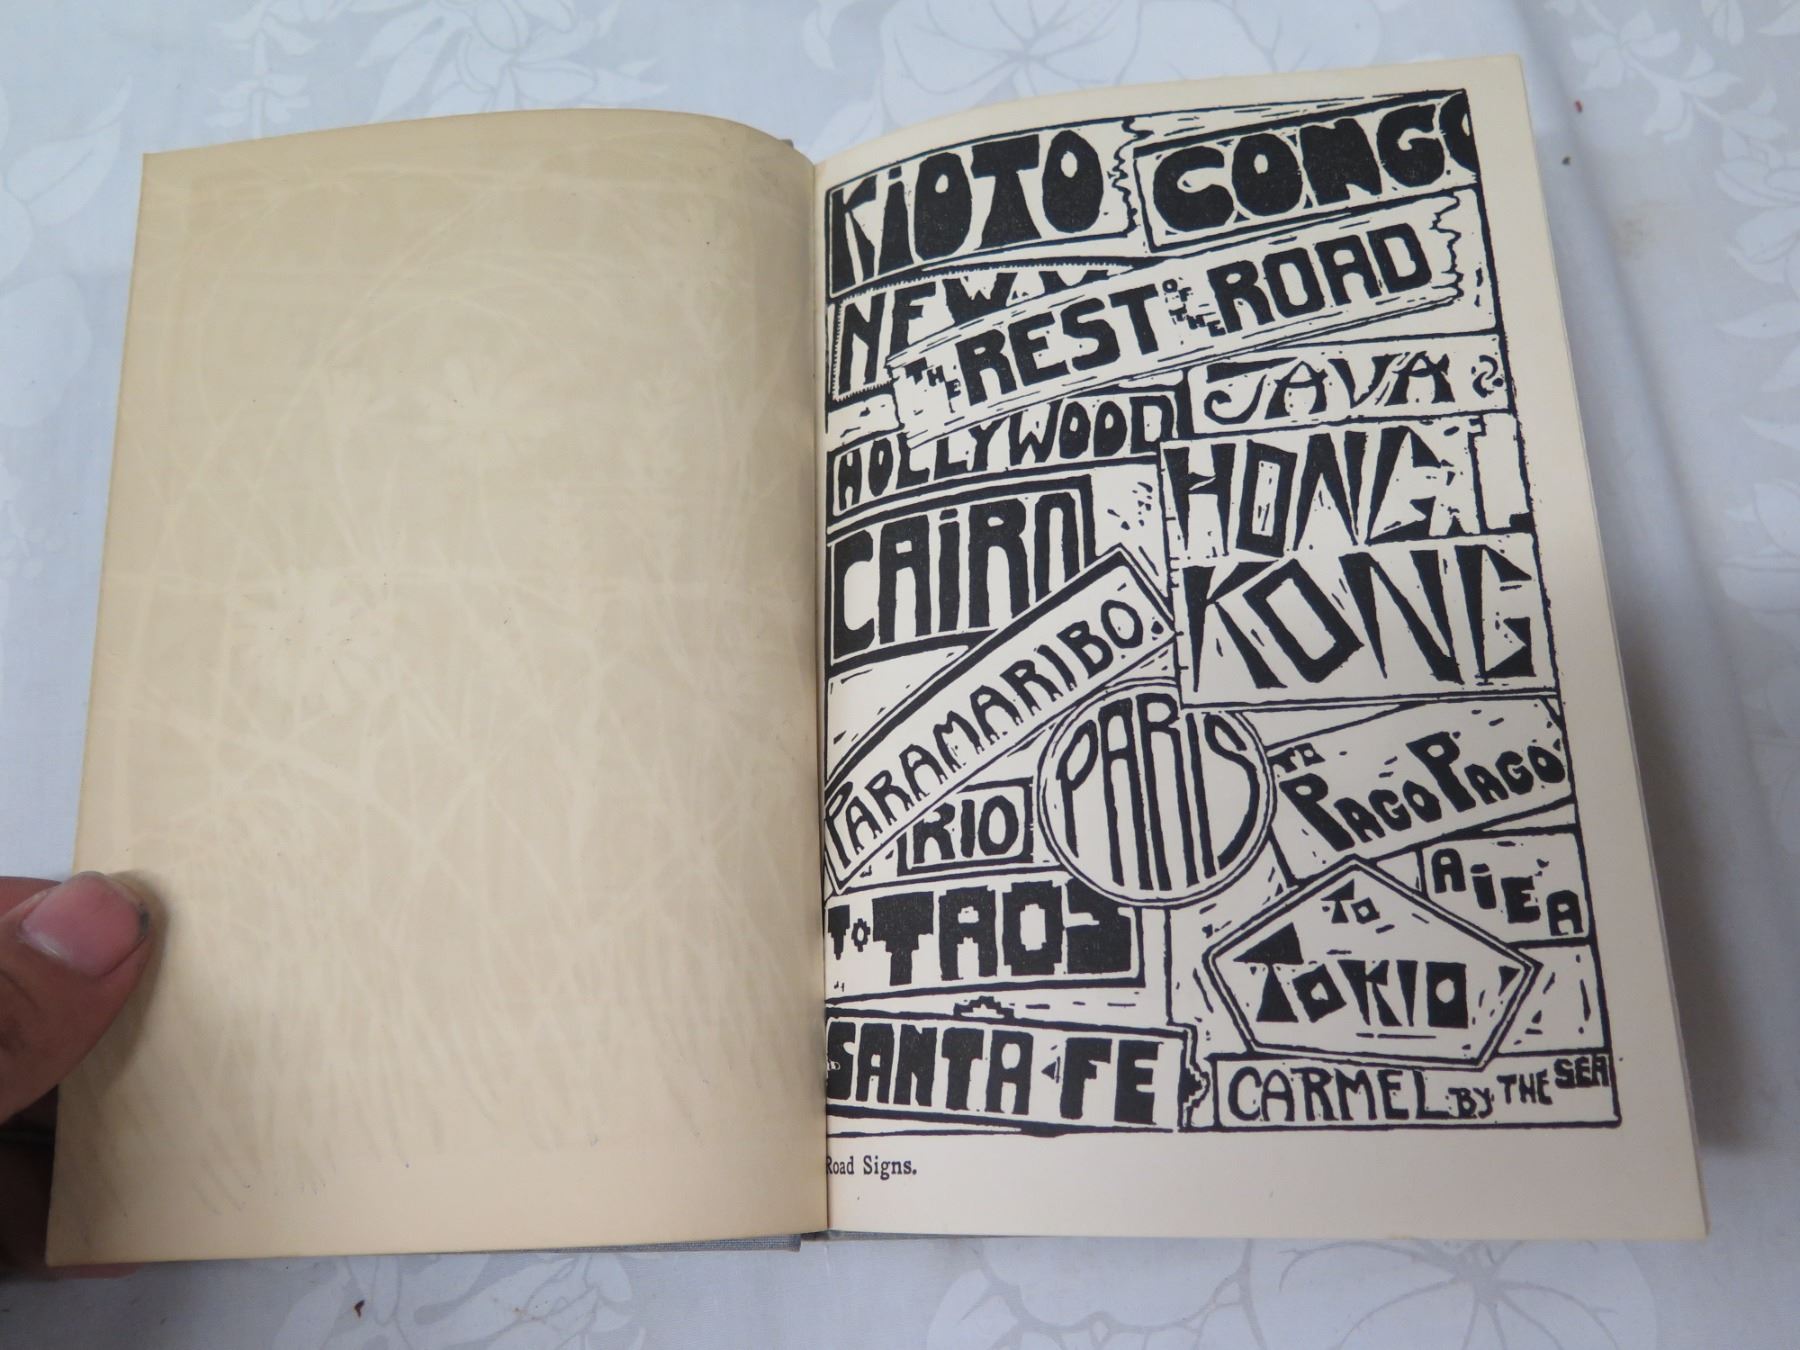 KiOTO
CONGO
NEW
THE REST OF THE ROAD
JAVA
HOLLYWOOD
HONG
KONG
CAiRO
PARAMARIBO.
PARIS
TO
PAGO PAGO
RIO
AiEA
TO TAOS
TO
TOKIO
SANTA-FE
CARMEL BY THE SEA
Road Signs.